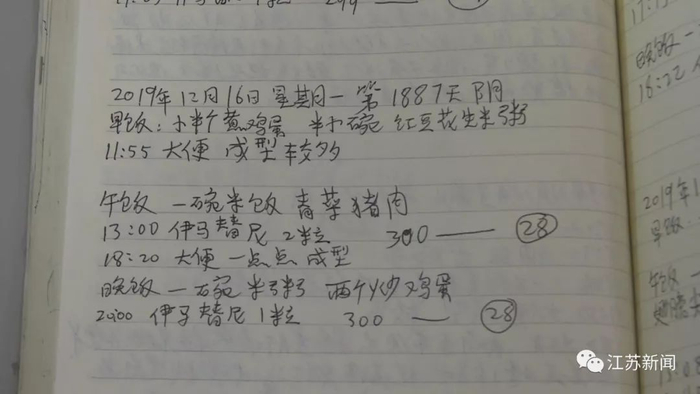 2019年12月16日 星期一 第1887天 阴
早饭：小半个黄鸡蛋 半小碗 红豆花生米粥
11:55 大便 成型 较多
午饭 一碗米饭 青菜猪肉
13:00 伊马替尼 2粒 300 —— 28
18:20 大便 一点点 成型
晚饭 一碗米粥 两个炒鸡蛋
20:00 伊马替尼 1粒 300 — 28
2019年1
早饭
午饭
晚饭一
江苏新闻